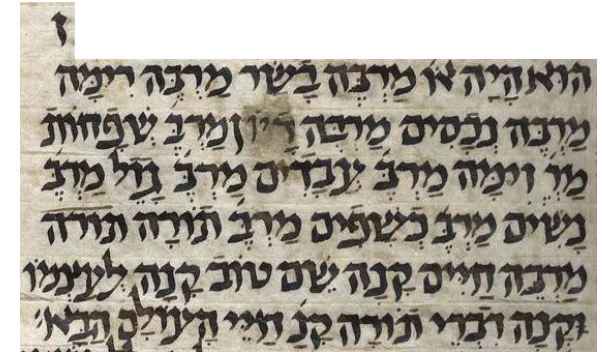 ז
הוא היה או מרבה בשר מרבה רימה
מרבה נכסים מרבה מרב שפחות
מר זימה מרב עבדים מרב גזל מרב
נשים מרב כשפים מרב תורה תורה
מרבה חיים קנה שם טוב קנה לעצמו
וקנה דברי תורה קנ חיי העולם הבא